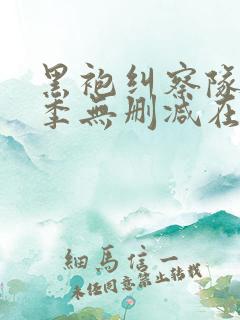 黑袍纠察队
季無删减在
細馬信一
未经同意禁止转载